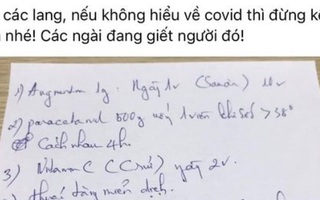 các lang, nếu không hiểu về covid thì đừng k
nhé! Các ngài đang giết người đó!
1) Augmentin 1g. Ngày 1v
2) paracetamol 500g uống 1 viên khi sốt > 38°
Cách nhau 4h.
3) Vitamin C ngày 2v.
thuốc tăng miễn dịch.